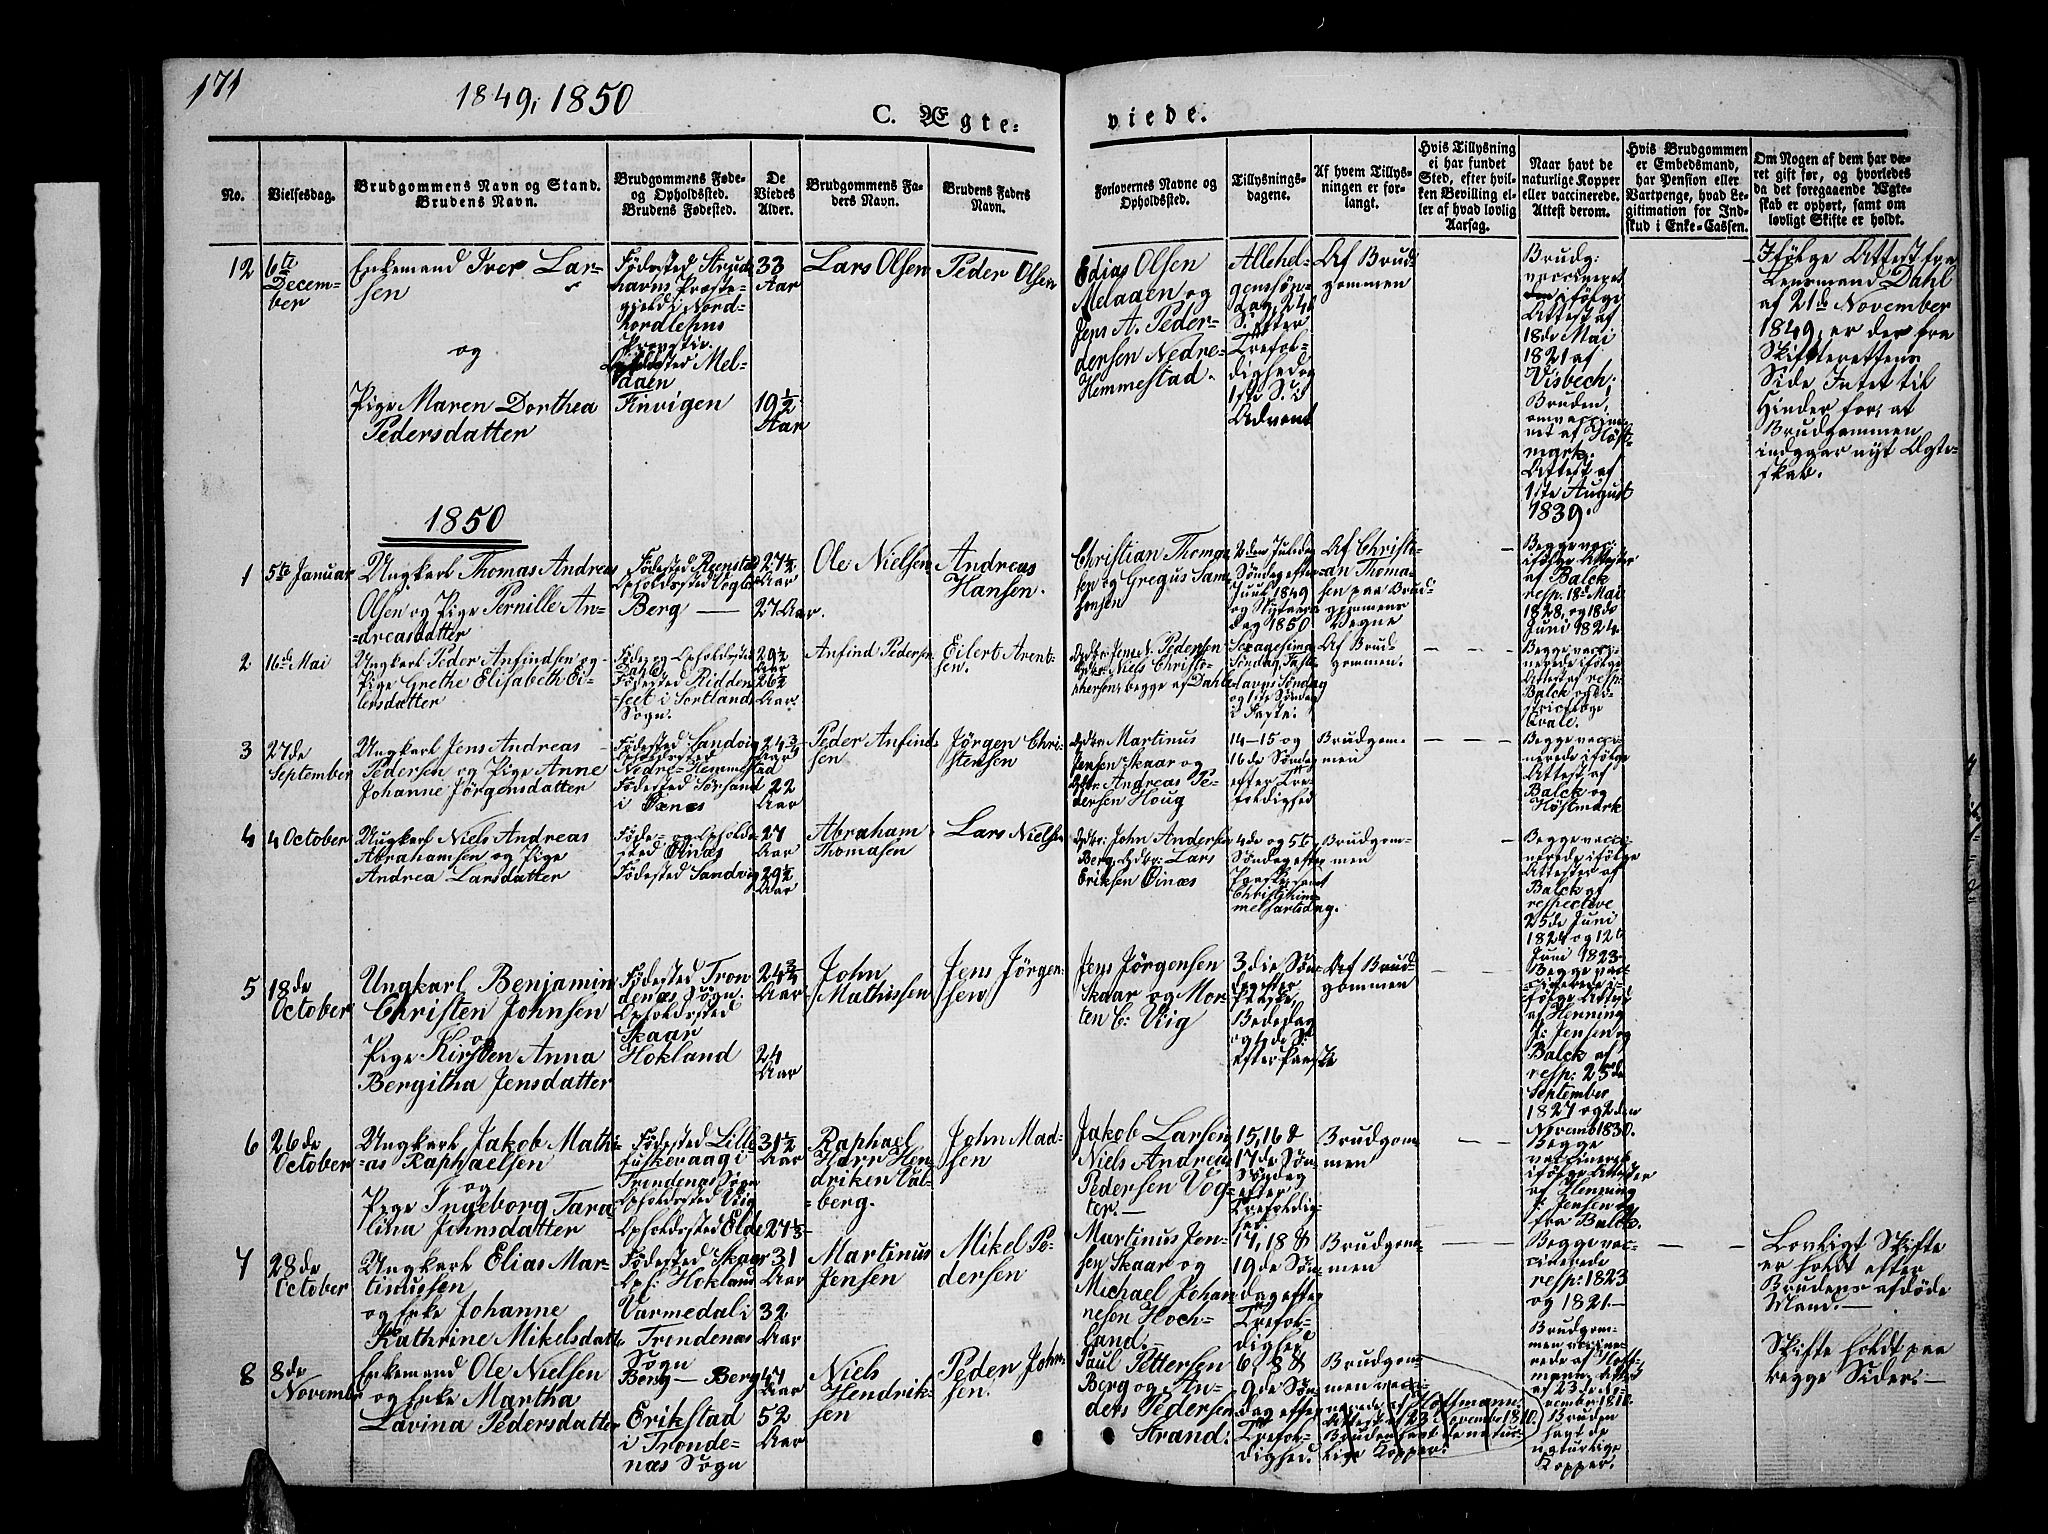 171
1849, 1850
C. Ægte-
viede.
No.
Vielsesdag.
Brudgommens Navn og Stand.
Brudens Navn.
Brudgommens Føde-
og Opholdssted.
Brudens Fødested.
De
Viedes
Alder.
Brudgommens Fa-
ders Navn.
Brudens Faders
Navn.
Forlovernes Navne og
Opholdssted.
Tillysnings-
dagene.
Af hvem Tillys-
ningen er for-
langt.
Hvis Tillysning
ei har fundet
Sted, efter hvil-
ken Bevilling el-
ler af hvad lovlig
Aarsag.
Naar havt de
naturlige Kopper
eller vaccinerede.
Attest derom.
Hvis Brudgommen
er Embedsmand,
har Pension eller
Vartpenge, hvad Le-
gitimation for Ind-
skud i Enke-Cassen.
Om Nogen af dem har væ-
ret gift før, og hvorledes
da det foregaaende Ægte-
skab er ophørt, samt om
lovligt Skifte er holdt.
12
6te
Decem-
ber
Enkemand Iver Lar-
sen
og
Pige Maren Dorthea
Pedersdatter
Fødested
havns Præste-
gjeld i Nord-
hordlehns
Provstie.
Opholdssted Mel-
aaen
Finvigen
33
Aar
19 1/2
Aar
Lars Olsen
Peder Olsen
Edias Olsen
Melaaen og
Jens A. Peder-
dersen Nedre-
Hemmestad.
Allehel-
gensSøn-
dag, 24d
S. efter
Trefol-
dighed og
1ste S. i
Advent
Af Brud-
gommen
Brudg:
vaccineret
ifølge
Attest af
18de Mai
1821 af
Visbech;
Bruden,
net af Høst-
mark.
Attest af
1ste August
1839.
Ifølge Attest fra
Lensmand Dahl
af 21de November
1849, er der fra
Skifterettens
Side Intet til
Hinder for, at
Brudgommen
indgaar nyt Ægte-
skab.
1850
1
5te Januar
Ungkarl Thomas Andreas
Olsen og Pige Pernille An-
dreasdatter
Fødested Reenstad
Opholdssted
Berg —
27 1/2
Aar
27 Aar.
Ole Nielsen
Andreas
Hansen.
Christian Thoma-
sen og Gregus Sam-
honsen
2den Juledag
Søndag efter
Juul 1849
og Nytaars
dag 1850
Af Christi-
an Thoma-
sen paa Brud-
gommens
Vegne
Begge vac:
ifølge Attester
af Balck
resp. 18de Mai
1828, og 18de
Juni 1824.
2
16de Mai
Ungkarl Peder Anfindsen og
Pige Grethe Elisabeth Ei-
lersdatter
Føde og Opholdssted
Fødested Ridden-
seet i Sortlands
Sogn.
29 1/2
Aar
26 1/2
Aar.
Anfind Pedersen
Eilert Arent-
sen.
Jens J. Pedersen
Niels Christo-
phersen, begge af Dahle
Sexagesima
Søndag, Faste-
lavns Søndag
og 1ste Søndag
i Faste.
Af Brud-
gommen.
Begge vacci-
nerede ifølge
Attest af resp:
Balck og Di-
strictslæge
3
27de
September
Ungkarl Jens Andreas
Pedersen og Pige Anne
Johanne Jørgensdatter
Fødested Sandvig
Opholdssted
Nedre-Hemmestad
Fødested Sørsand
i
24 3/4
Aar
22
Aar
Peder Anfind-
sen
Jørgen Chri-
stensen
Martinus
Jensen Skaar og
Andreas Pe-
dersen Houg
14-15 og
16de Søndag
efter Tre-
foldighed
Brudgom-
men
Begge vacci-
nerede ifølge
Attest af
Balck og
Høstmark
4
4 October
Ungkarl Niels Andreas
Abrahamsen og Pige
Andrea Larsdatter
Føde- og Opholds-
sted
Fødested Sandvig
27
Aar
29 1/2
Aar
Abraham
Thomasen
Lars Nielsen
John Andersen
Berg, Lars
Eriksen
4de og 5te
Søndag efter
Paaske, samt
Christi Him-
melfartsdag.
Brudgom-
men
Begge vacci-
nerede ifølge
Attester af
Balck af
respective
25de Juni
1824 og 12te
Juni 1823
5
18de
October
Ungkarl Benjamin
Christen Johnsen
og
Pige Kirsten Anna
Bergitha Jensdatter
Fødested Tron-
denæs Sogn.
Opholdssted
Skaar
Hokland
24 3/4
Aar
24
Aar
John
Mathissen
Jens Jörgen-
sen
Jens Jörgensen
Skaar og Mor-
ten C: Viig
3die Søn-
dag efter
Paaske,
Bededag
og 4de S:
efter Paaske
Af Brud-
gommen
Begge vac-
cinerede i-
følge Attest
af Henning
J: Jensen og
Balck af
resp: 25de
September
1827 og 2den
Novemb 1830.
6
26de
October
Ungkarl Jakob Mathi-
as Raphaelsen
og
Pige Ingeborg Tara-
lina Johnsdatter
Fødested Lille
i
Trondenæs Sogn
Opholdssted Viig
Opholdssted Elde
31 1/2
Aar
27 1/2
Raphael
Harr Hen-
driken Val-
berg.
John Mad-
sen
Jakob Larsen
Niels Andreas
Pedersen Vog-
ter.—
15, 16 &
17de Søn-
Søndag
efter
Trefoldig-
hed.
Brudgom-
men
Begge
vaccinerede
ifølge Attester
af Henning
J. Jensen og
fra Balck.
7
28de
October
Ungkarl Elias Mar-
tinussen
og Enke Johanne
Kathrine Mikelsdatter
Fødested Skaar
Oph: Hokland
Varmedal i
Trondenæs
Sogn
31
Aar
32
Aar
Martinus
Jensen
Mikel Pe-
dersen
Martinus Jen-
sen Skaar og
Michael Johan-
nesen Hoch-
land.
17, 18 &
19de Søn-
dag efter
Trefol-
dighed
Brudgom-
men
Begge vac-
cinerede
resp: 1823
og 1821.—
Lovligt Skifte
er holdt efter
Brudens afdöde
Mand.—
8
8de
November
Enkemand Ole Nielsen
og Enke Martha
Lavina Pedersdatter
Berg — Berg
Erikstad
i Tronde-
næs Sogn
47
Aar
52
Aar
Niels
Hendrik-
sen
Peder John-
sen.
Paul Pettersen
Berg og An-
ders Pedersen
Strand.
6, 8 &
9de Søn-
dag efter
Trefol-
dighed.
Brudgom-
men vacci-
nerede af Hoffmann.
Attest af 23 November 1810.
Bruden havt de natur-
lige Kopper.
Brudgom-
men vaccine-
rede af Hoff-
mann, Attest
af 23de No-
vember 1810.
Bruden
havt de
naturlige
Kopper.
Skifte holdt paa
begge Sider.—